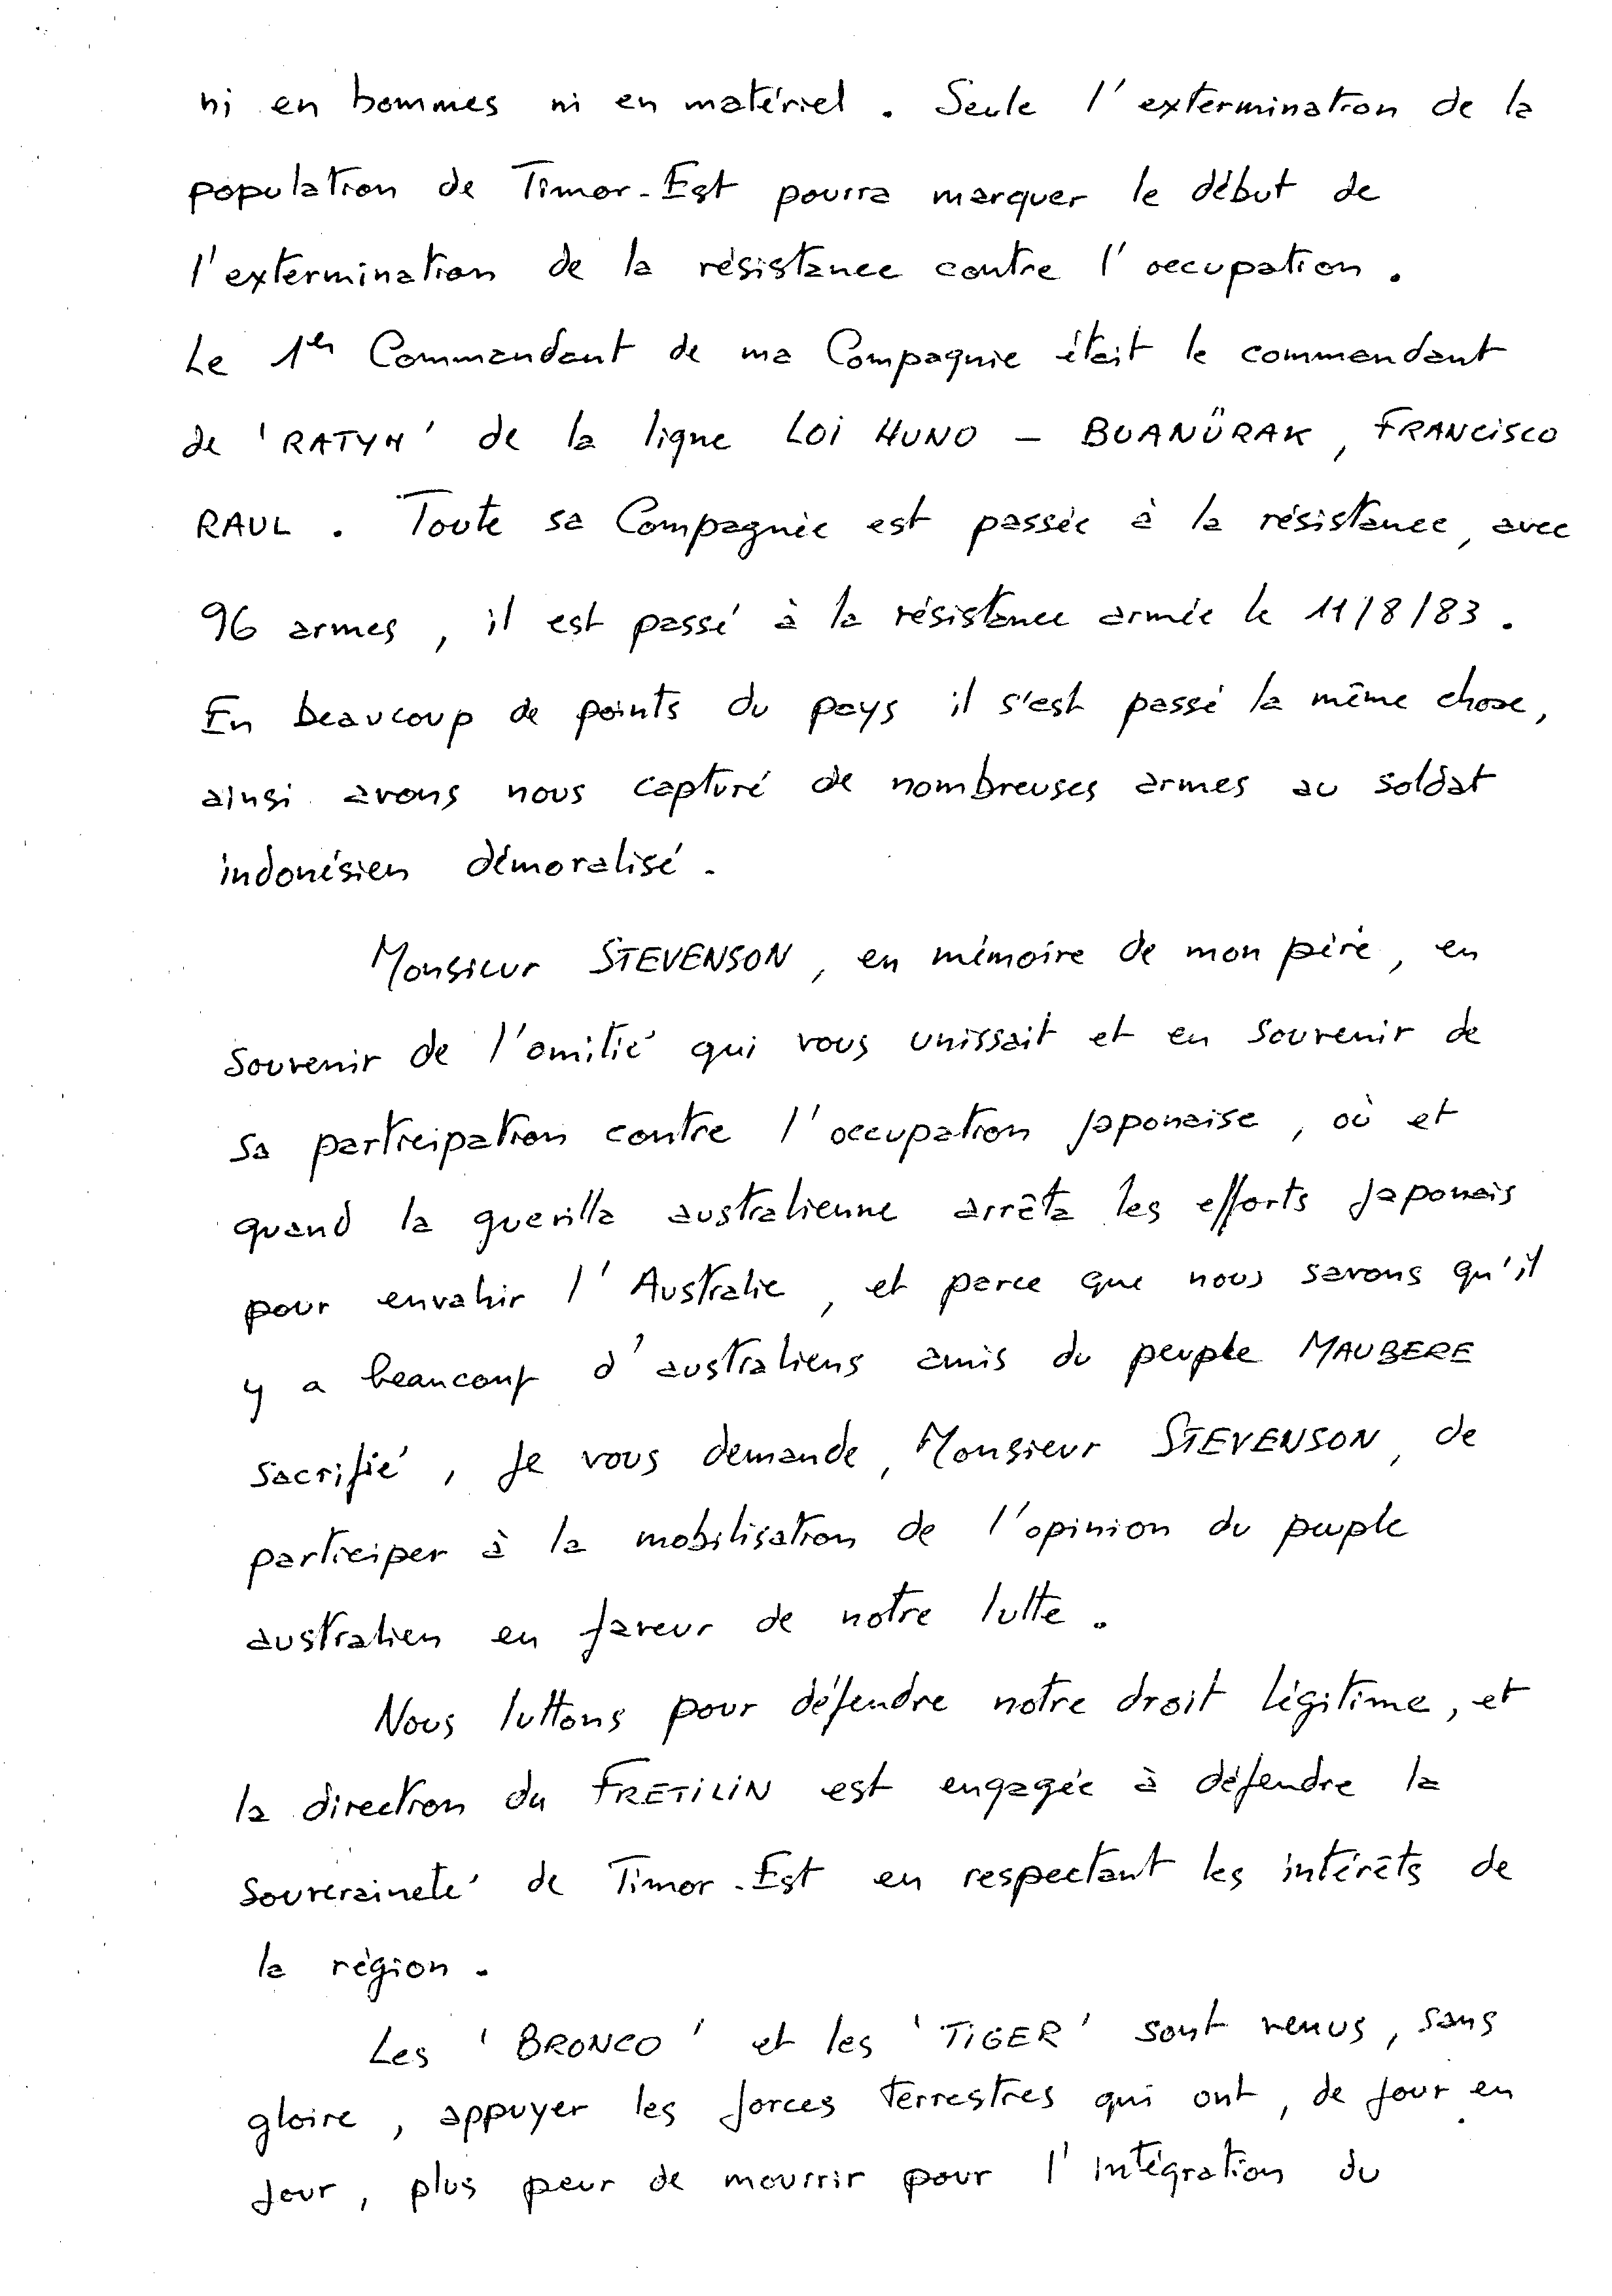 ni en hommes ni en matériel. Seule l'extermination de la
population de Timor-Est pourra marquer le début de
l'extermination de la résistance contre l'occupation.
Le 1er Commandant de ma Compagnie était le commandant
de 'RATYH' de la ligne LOI HUNO - BUANÜRAK, FRANCISCO
RAUL. Toute sa Compagnie est passée à la résistance, avec
96 armes, il est passé à la résistance armée le 11/8/83.
En beaucoup de points du pays il s'est passé la même chose,
ainsi avons nous capturé de nombreuses armes au soldat
indonésien démoralisé.
Monsieur STEVENSON, en mémoire de mon père, en
souvenir de l'amitié qui vous unissait et en souvenir de
sa participation contre l'occupation japonaise, où et
quand la guerilla australienne arrêta les efforts japonais
pour envahir l'Australie, et parce que nous savons qu'il
y a beaucoup d'australiens amis du peuple MAUBERE
sacrifié, je vous demande, Monsieur STEVENSON, de
participer à la mobilisation de l'opinion du peuple
australien en faveur de notre lutte.
Nous luttons pour défendre notre droit légitime, et
la direction du FRETILIN est engagée à défendre la
souveraineté de Timor-Est en respectant les intérêts de
la région.
Les 'BRONCO' et les 'TIGER' sont venus, sans
gloire, appuyer les forces terrestres qui ont, de jour en
jour, plus peur de mourrir pour l'intégration du